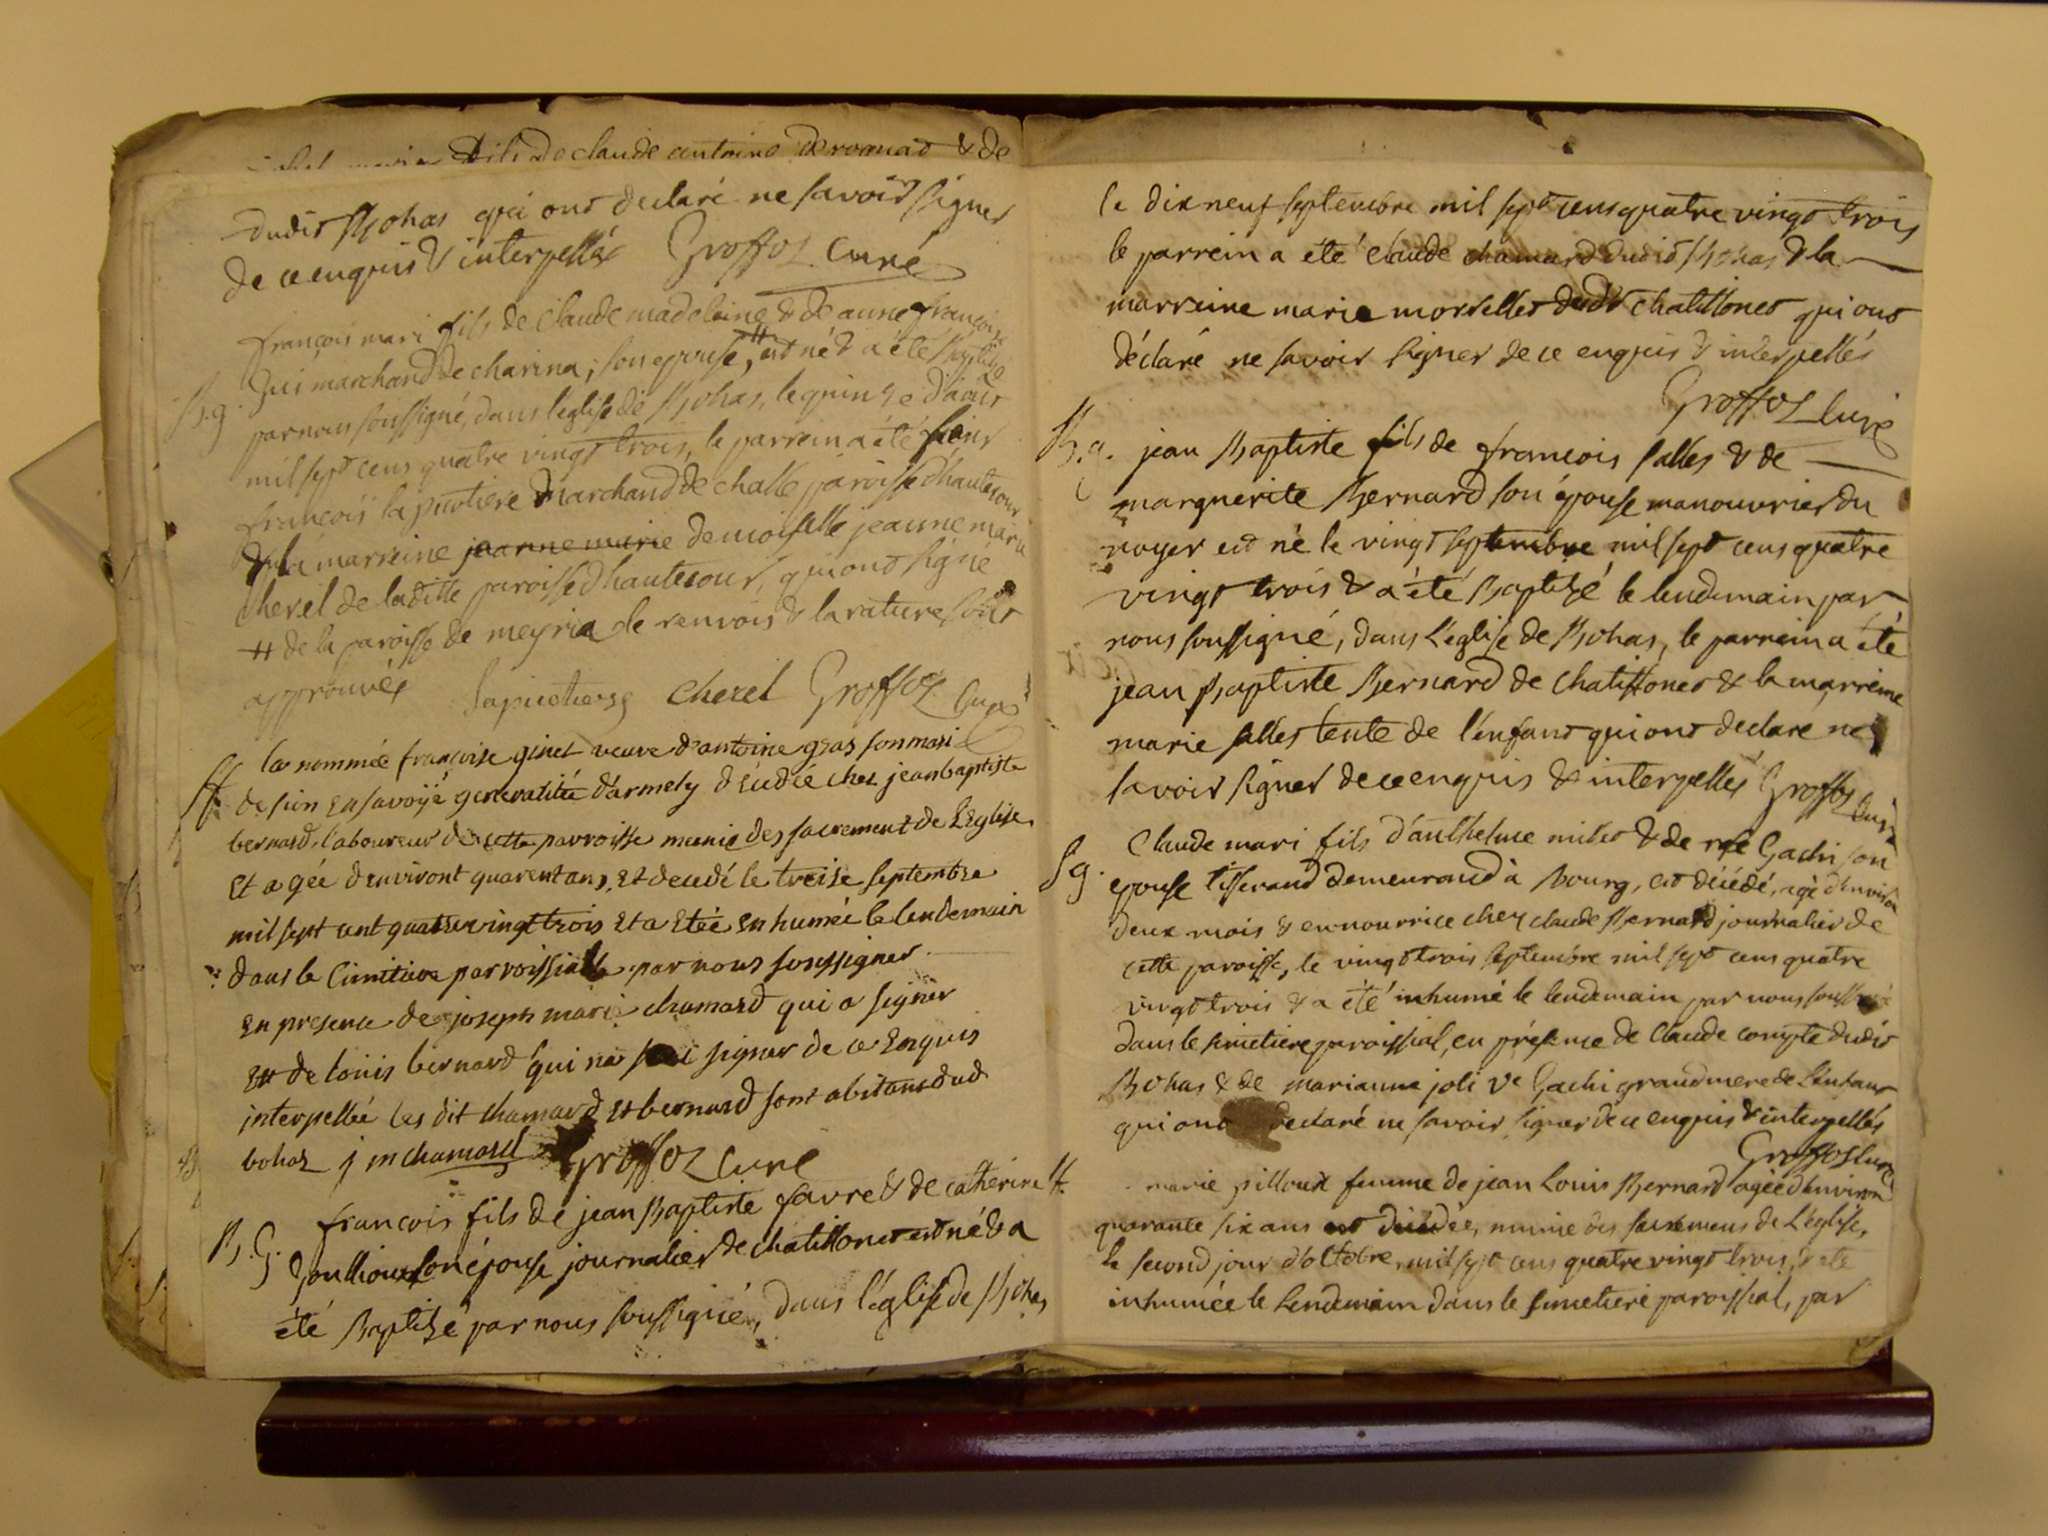 fils de claude antoine & de
dudit Bohas qui ont declaré ne savoir signer
de ce enquis & interpellés Groffoz Curé
françois mari fils de Claude madeleine & de anne françoise
B.g. Gui marchand de charina, son epouse, # est né & a été baptisé
par nous soussigné, dans l'église de Bohas, le quinze d'aout
mil sept cens quatre vingt trois, le parrein a été sieur
françois la puctiere marchand de challe paroisse d'hautecour
& la marreine jeanne marie demoiselle jeanne marie
Cherel de laditte paroisse d'hautecour, qui ont signé
# de la paroisse de meyria le renvois & la rature sont
approuvés lapuctiere Cherel Groffoz Curé
la nommée françoise ginet veuve d'antoine gras son mari
Sf. de sion en savoÿe generalitée d'armely décédée chez jean baptiste
bernard laboureur de cette parroisse munie des sacrement de l'Eglise
et agée d'environt quarent ans, et decedé le treise septembre
mil sept cent quatrevingt trois et a etéé enhumée le lendemain
dans le cimitiere parroissialle par nous soussigner
en presence de joseph marie chamard qui a signer
et de louis bernard qui na sai signer de ce enquis
interpellée les dit chamard et bernard sont abitans dud
bohaz j m chamard Groffoz Curé
B.G. francois fils de jean Baptiste favre & de catherine
Goullioux son épouse journalier de chatillonet est né & a
été Baptisé par nous soussigné, dans l'église de Bohas
le dix neuf septembre mil sept cens quatre vingt trois
le parrein a été claude chamard dudit Bohas & la
marreine marie morrellet dudt chatillonet qui ont
déclaré ne savoir signer de ce enquis & interpellés
Groffoz Curé
B.g. jean Baptiste fils de francois salles & de
marguerite Bernard son épouse manouvrier du
noyer est né le vingt septembre mil sept cens quatre
vingt trois & a été Baptisé le lendemain par
nous soussigné, dans l'église de Bohas, le parrein a été
jean Baptiste Bernard de chatillonet & la marreine
marie salles tente de l'enfant qui ont declare ne
savoir signer de ce enquis & interpellés Groffoz Curé
Claude mari fils d'anthelme milet & de Gachi son
Sg. epouse tisserand demeurand à Bourg, est décédé, agé d'environ
deux mois & en nourrice chez claude Bernard journalier de
cette paroisse, le vingt trois septembre mil sept cens quatre
vingt trois & a été inhumé le lendemain par nous soussigné
dans le simetiere paroissial, en présence de Claude compte dudit
Bohas & de marianne joli ve Gachi grandmere de l'enfant
qui ont declaré ne savoir signer de ce enquis & interpellés
Groffoz Curé
Sf. marie pilloux femme de jean Louis Bernard agée d'environ
quarante six ans est décédée, munie des sacremens de l'église,
le second jour d'octobre mil sept cens quatre vingt trois, & a été
inhumée le lendemain dans le simetiere paroissial, par